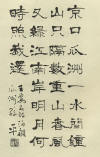 京口瓜洲一水間鍾
山只隔數重山春風
又綠江南岸明月何
時照我還